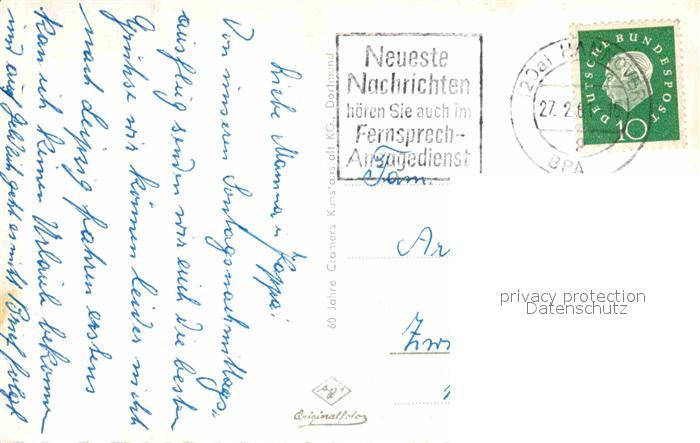 Liebe Mamma u. Pappa!
Von unseren Sontagsnachmittags-
ausflug senden wir euch die besten
Grühse wir können leider nicht
nach Leipzig fahren erstens
kan ich keinen Urlaub bekomen
und auf Geld geht es nicht Brief folgt
60 Jahre Cramers Kunstanstalt KG., Dortmund
Neueste
Nachrichten
hören Sie auch im
Fernsprech-
Ansagedienst
(20a) HANNOVER
27. 2. 6
8
BPA
DEUTSCHE BUNDESPOST
10
Fam.
Ar
Zwi
privacy protection
Datenschutz
Agfa
Originalfoto